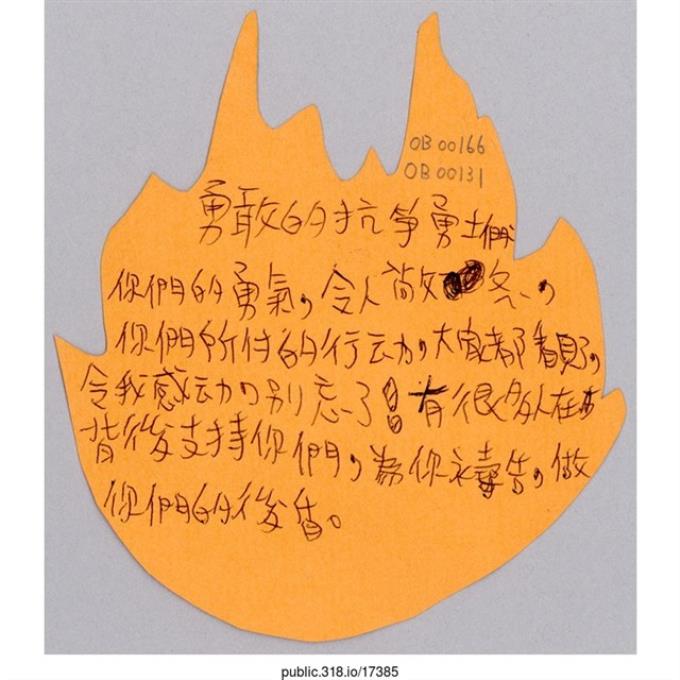 OB 00166
OB 00131
勇敢的抗争勇士們
你們的勇氣，令人敬
你們所付的行动，大家都看見了，
令我感动，別忘了有很多人在
背後支持你們，為你禱告，做
你們的後盾。
public.318.io/17385